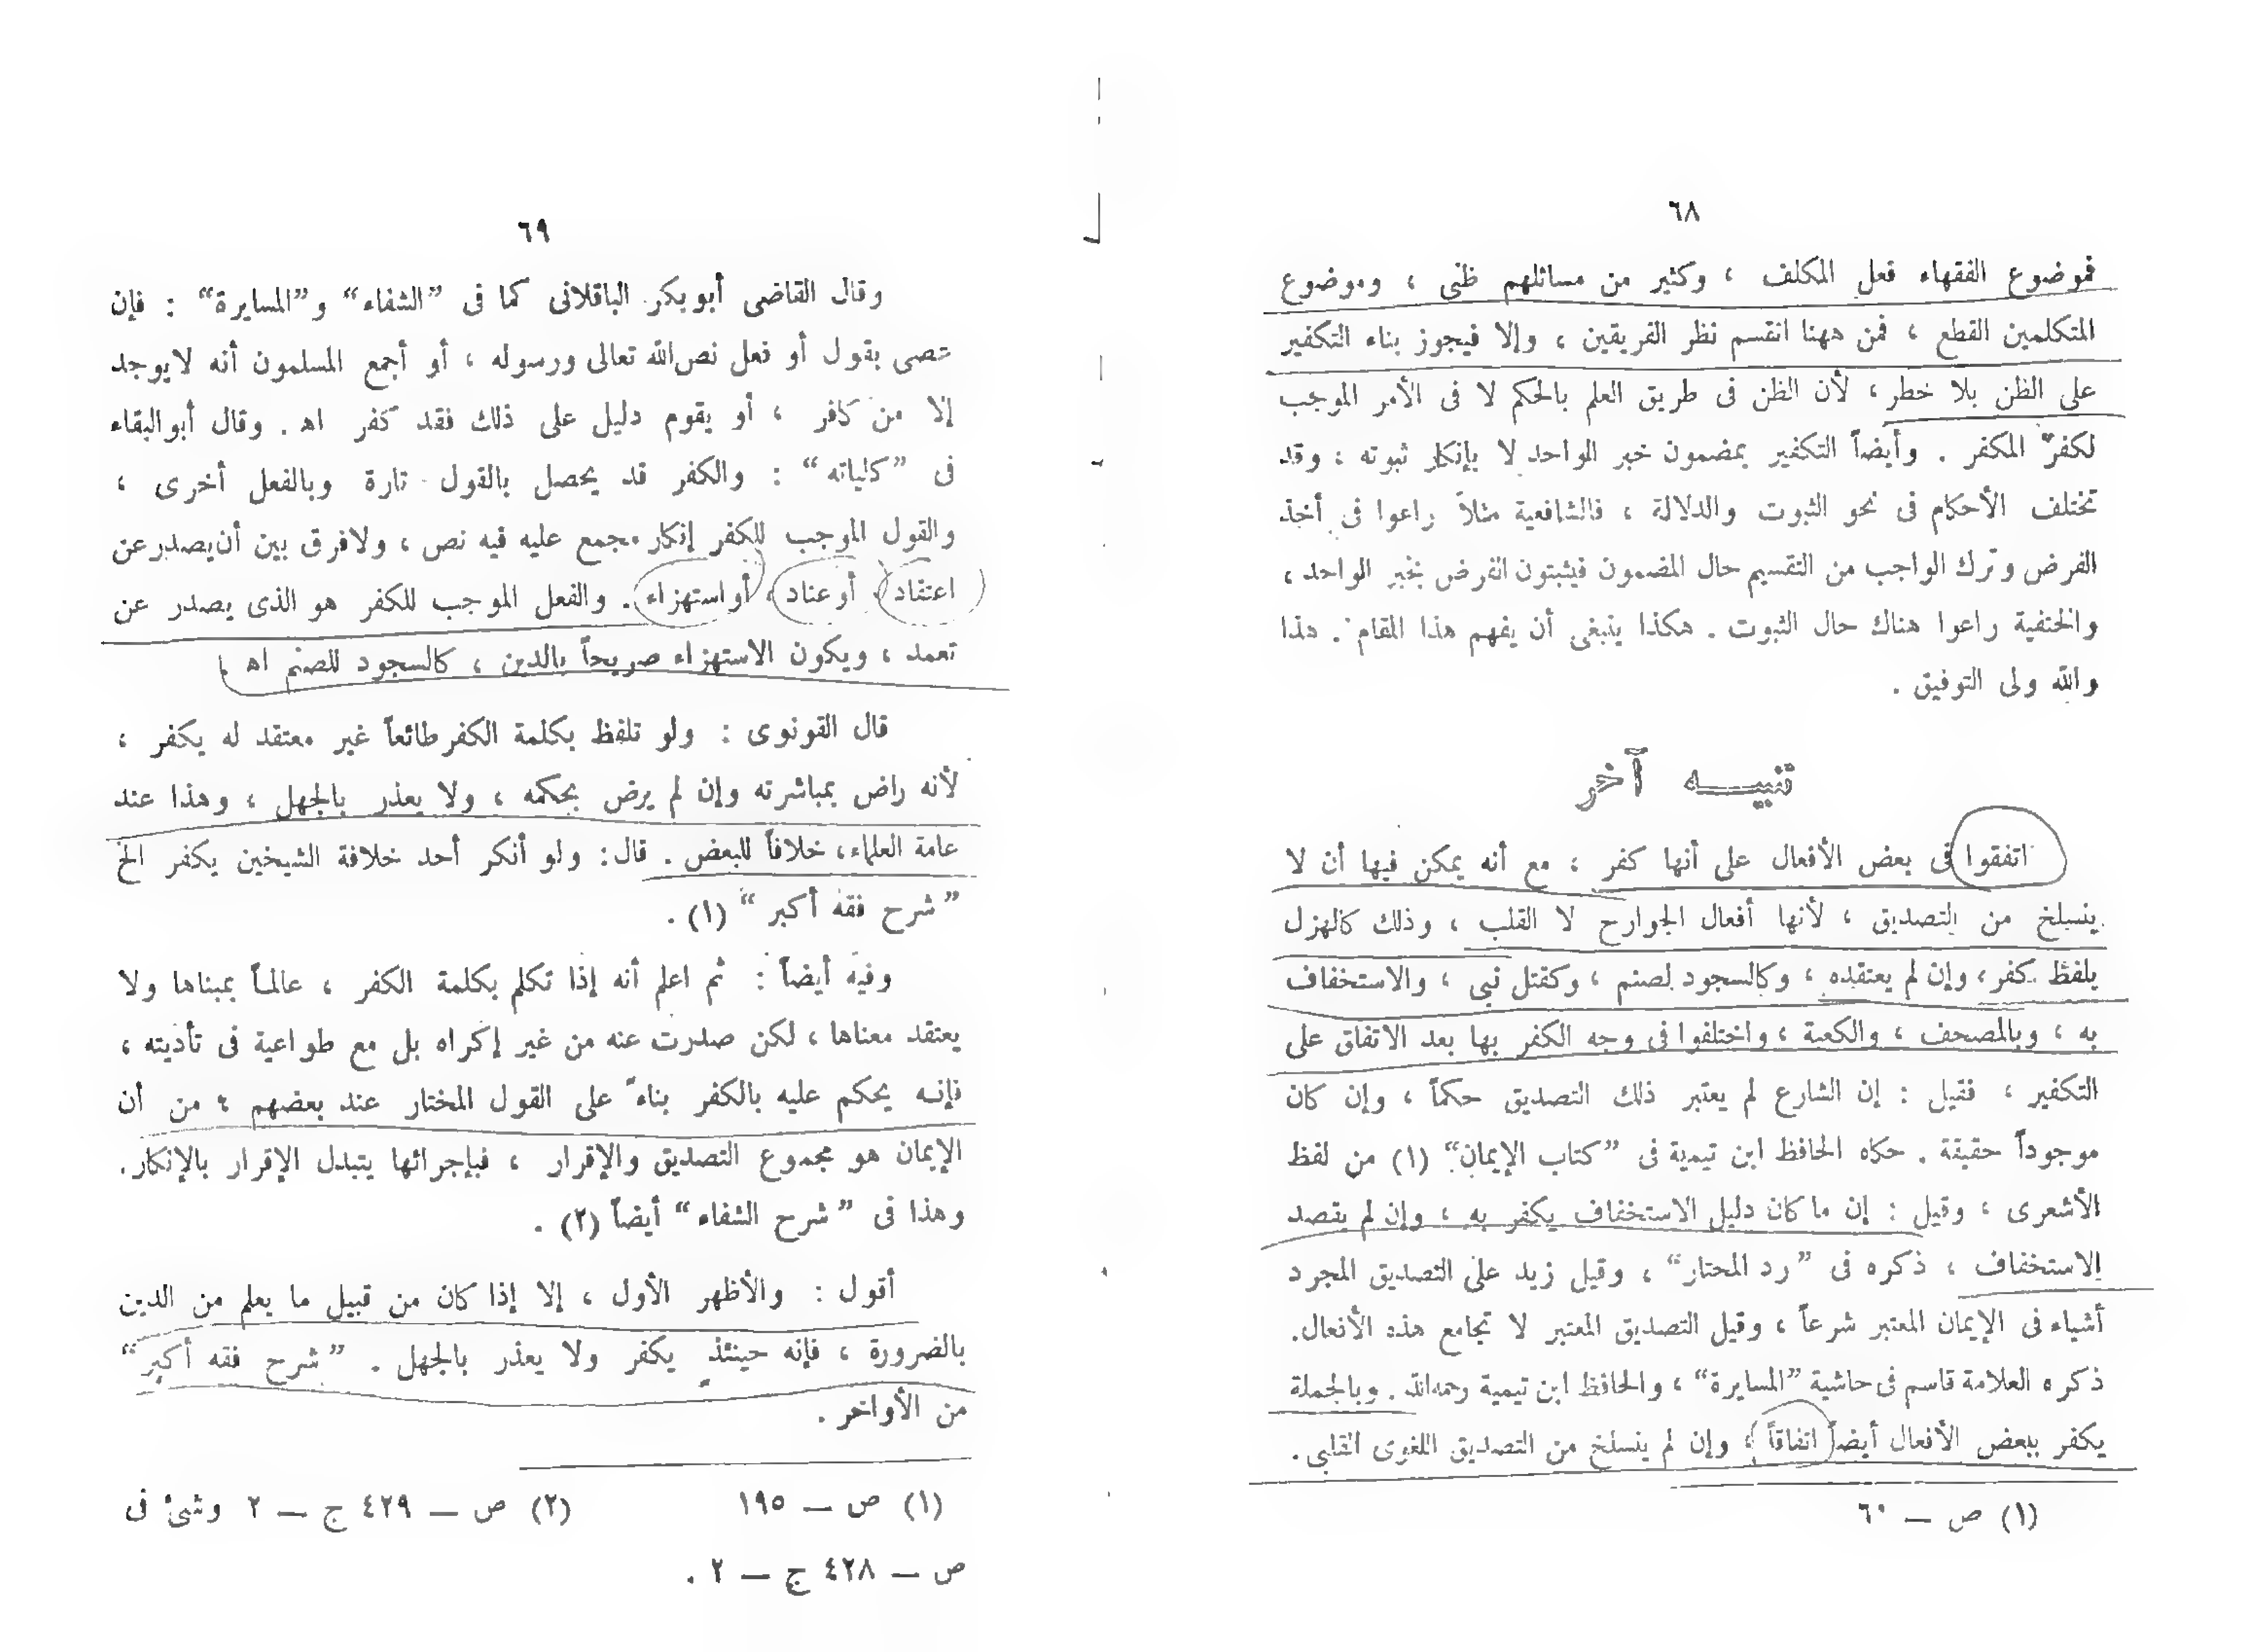 ٦٨
فموضوع الفقهاء فعل المكلف ، وكثير من مسائلهم ظنى ، وموضوع
المتكلمين القطع ، فمن ههنا انقسم نظر الفريقين ، وإلا فيجوز بناء التكفير
على الظن بلا خطر ، لأن الظن فى طريق العلم بالحكم لا فى الأمر الموجب
لكفر المكفر . وأيضاً التكفير بمضمون خبر الواحد لا بإنكار ثبوته ، وقد
تختلف الأحكام فى نحو الثبوت والدلالة ، فالشافعية مثلاً راعوا فى أخذ
الفرض وترك الواجب من التقسيم حال المضمون فيثبتون الفرض بخبر الواحد ،
والحنفية راعوا هناك حال الثبوت . هكذا ينبغى أن يفهم هذا المقام . هذا
والله ولى التوفيق .
تنبيــه آخر
اتفقوا فى بعض الأفعال على أنها كفر ، مع أنه يمكن فيها أن لا
ينسلخ من التصديق ، لأنها أفعال الجوارح لا القلب ، وذلك كالهزل
بلفظ كفر ، وإن لم يعتقده ، وكالسجود لصنم ، وكقتل نبى ، والاستخفاف
به ، وبالمصحف ، والكعبة ، واختلفوا فى وجه الكفر بها بعد الاتفاق على
التكفير ، فقيل : إن الشارع لم يعتبر ذلك التصديق حكماً ، وإن كان
موجوداً حقيقة . حكاه الحافظ ابن تيمية فى ”كتاب الإيمان“ (١) من لفظ
الأشعرى ، وقيل : إن ما كان دليل الاستخفاف يكفر به ، وإن لم يقصد
الاستخفاف ، ذكره فى ”رد المحتار“ ، وقيل زيد على التصديق المجرد
أشياء فى الإيمان المعتبر شرعاً ، وقيل التصديق المعتبر لا تجامع هذه الأفعال.
ذكره العلامة قاسم فى حاشية ”المسايرة“ ، والحافظ ابن تيمية رحمه الله . وبالجملة
يكفر ببعض الأفعال أيضاً اتفاقاً ، وإن لم ينسلخ من التصديق اللغوى القلبى .
(١) ص — ٦٠
٦٩
وقال القاضى أبو بكر الباقلانى كما فى ”الشفاء“ و”المسايرة“ : فإن
عصى بقول أو فعل نص الله تعالى ورسوله ، أو أجمع المسلمون أنه لا يوجد
إلا من كافر ، أو يقوم دليل على ذلك فقد كفر اه . وقال أبو البقاء
فى ”كلياته“ : والكفر قد يحصل بالقول تارة وبالفعل أخرى ،
والقول الموجب للكفر إنكار مجمع عليه فيه نص ، ولافرق بين أن يصدر عن
اعتقاد ، أو عناد ، أو استهزاء . والفعل الموجب للكفر هو الذى يصدر عن
تعمد ، ويكون الاستهزاء صريحاً بالدين ، كالسجود للصنم اه
قال القونوى : ولو تلفظ بكلمة الكفر طائعاً غير معتقد له يكفر ،
لأنه راض بمباشرته وإن لم يرض بحكمه ، ولا يعذر بالجهل ، وهذا عند
عامة العلماء ، خلافاً للبعض . قال : ولو أنكر أحد خلافة الشيخين يكفر الخ
”شرح فقه أكبر“ (١) .
وفيه أيضاً : ثم اعلم أنه إذا تكلم بكلمة الكفر ، عالماً بمبناها ولا
يعتقد معناها ، لكن صدرت عنه من غير إكراه بل مع طواعية فى تأديته ،
فإنه يحكم عليه بالكفر بناء على القول المختار عند بعضهم ، من أن
الإيمان هو مجموع التصديق والإقرار ، فبإجرائها يتبدل الإقرار بالإنكار .
وهذا فى ”شرح الشفاء“ أيضاً (٢) .
أقول : والأظهر الأول ، إلا إذا كان من قبيل ما يعلم من الدين
بالضرورة ، فإنه حينئذ يكفر ولا يعذر بالجهل . ”شرح فقه أكبر“
من الأواخر .
(١) ص — ١٩٥ (٢) ص — ٤٢٩ ج — ٢ وشئ فى
ص — ٤٢٨ ج — ٢ .